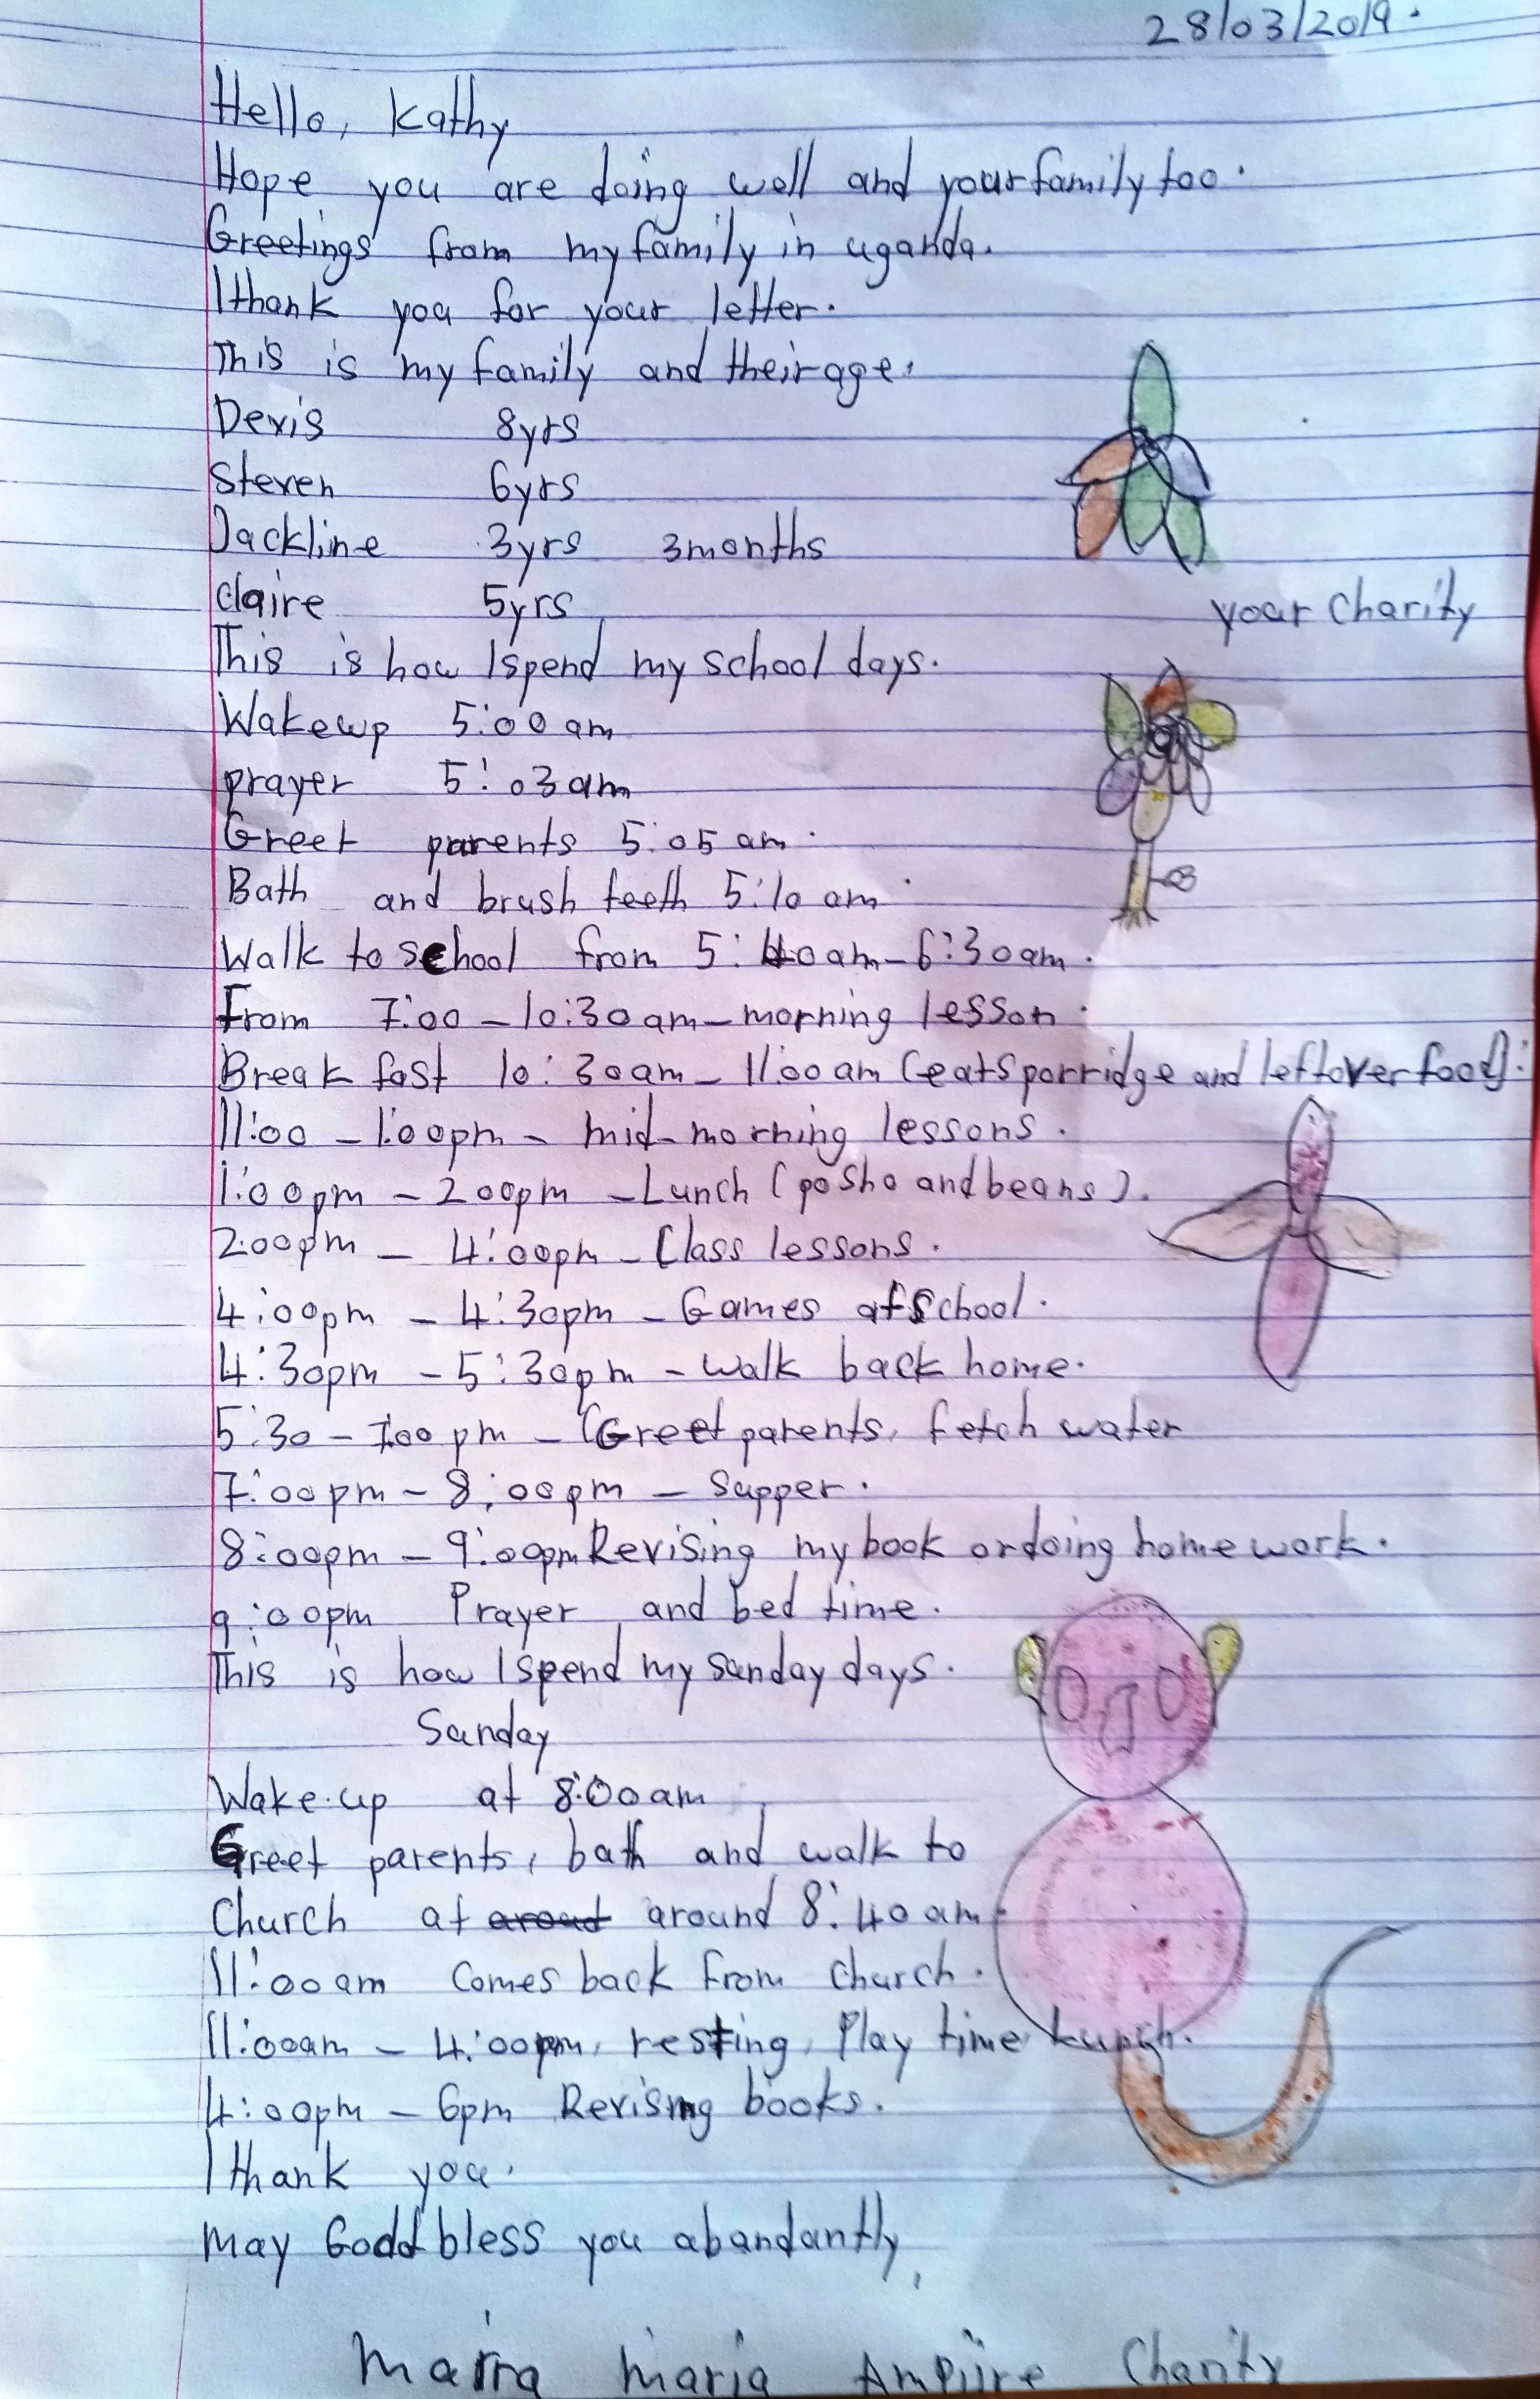 28/03/2019.
Hello, Kathy
Hope you are doing well and your family too.
Greetings from my family in uganda.
I thank you for your letter.
This is my family and their age.
Devis 8yrs
Steven 6yrs
Jackline 3yrs 3months
Claire 5yrs
your Charity
This is how I spend my school days.
Wakeup 5:00am
prayer 5:03am
Greet parents 5:05am.
Bath and brush teeth 5:10 am.
Walk to school from 5:40am - 6:30am.
From 7:00 - 10:30am - morning lesson.
Break fast 10:30am - 11:00am (eats porridge and leftover food).
11:00 - 1:00pm - mid-morning lessons.
1:00pm - 200pm - Lunch (posho and beans).
2:00pm - 4:00pm - Class lessons.
4:00pm - 4:30pm - Games at school.
4:30pm - 5:30pm - walk back home.
5:30 - 7:00pm - Greet parents, fetch water
7:00pm - 8:00pm - Supper.
8:00pm - 9:00pm Revising my book or doing home work.
9:00pm Prayer and bed time.
This is how I spend my sunday days.
Sunday
Wake up at 8:00am
Greet parents, bath and walk to
Church at around 8:40am.
11:00am Comes back from church.
11:00am - 4:00pm, resting, Play time
4:00pm - 6pm Revising books.
I thank you.
May God bless you abandantly,
maria Ampiire Charity